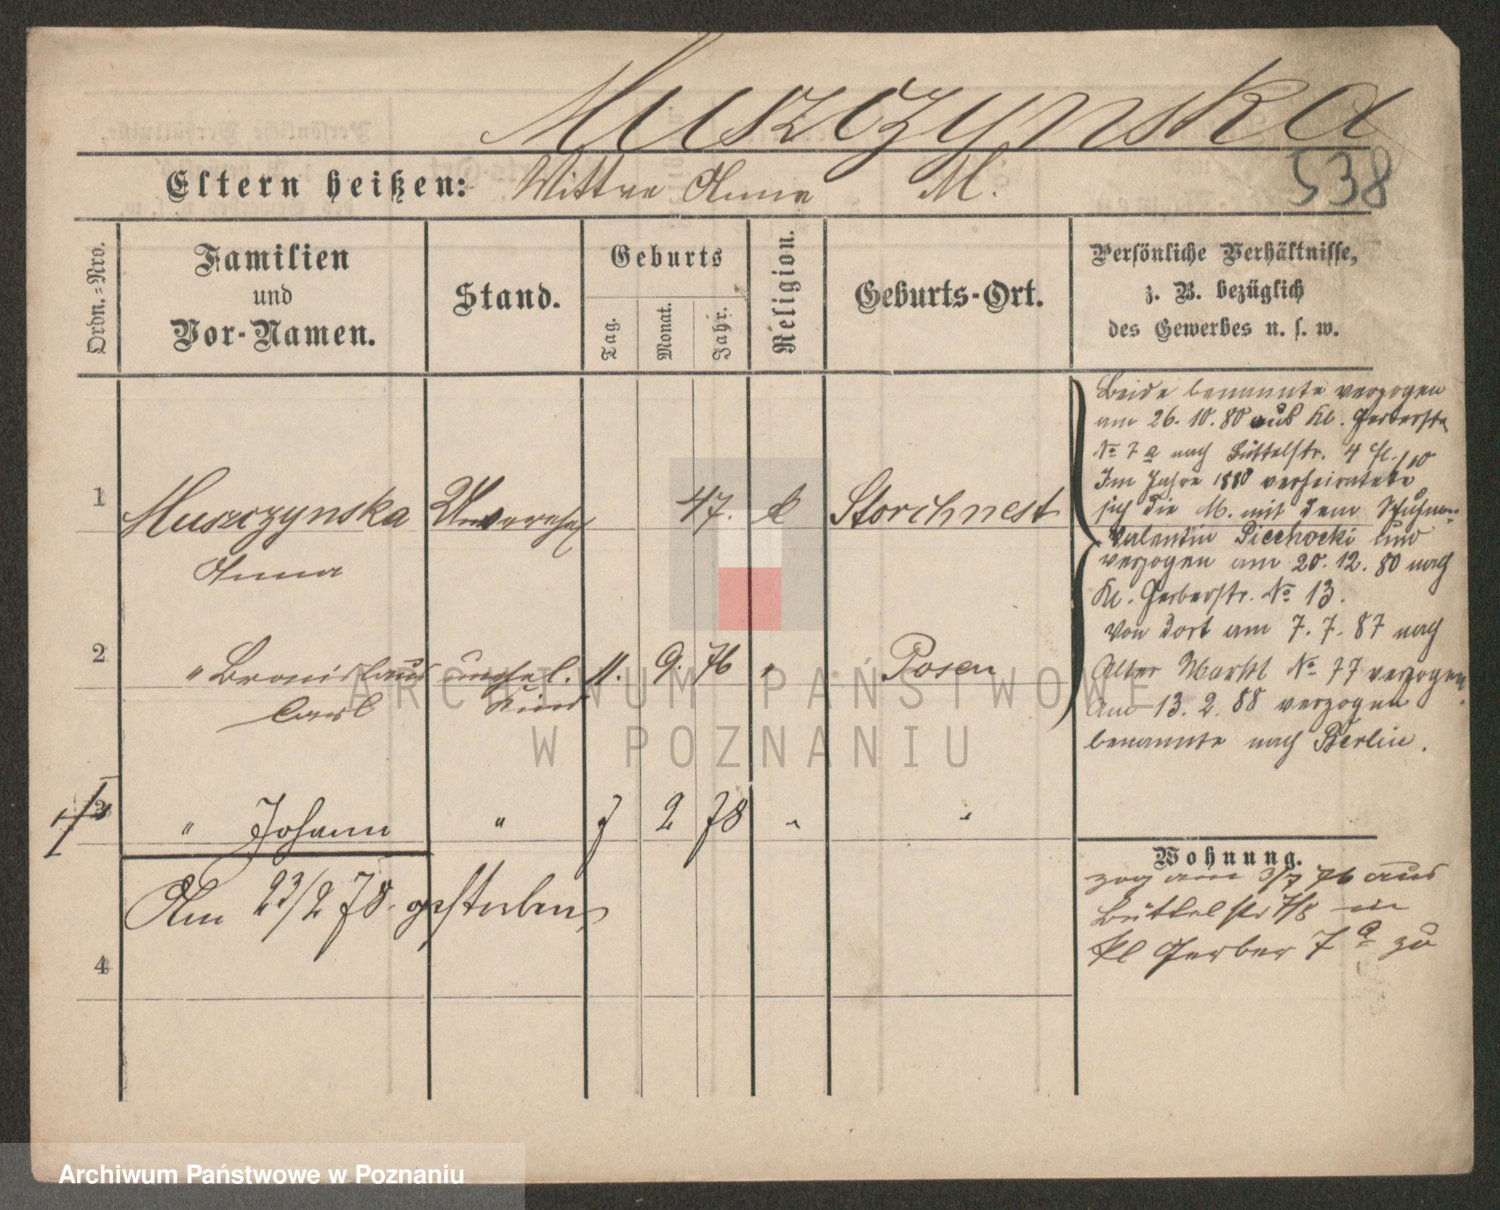 Muszczynska
538
Eltern heißen: Wittwe Anna M.
Ordn.-Nro.
Familien
und
Vor-Namen.
Stand.
Geburts
Tag.
Monat.
Jahr.
Religion.
Geburts-Ort.
Persönliche Verhältnisse,
z. B. bezüglich
des Gewerbes u. s. w.
1 Muszczynska 47. k Storchnest
Anna
2 " Bronislaus unehel. 11. 9. 76 " Posen
Carl Kind
3 " Johann " 7 2 78 " "
Am 23/2 78. gestorben
4
Beide benannte verzogen
am 26. 10. 80 aus Kl. Gerberstr.
No 7 a nach Büttelstr. 4
Im Jahre 1880 verheiratete
sich die M. mit dem
Valentin Piechocki und
verzogen am 20. 12. 80 nach
Kl. Gerberstr. No 13.
Von dort am 7. 7. 87 nach
Alter Markt No 77 verzogen.
Am 13. 2. 88 verzogen
benannte nach Berlin.
Wohnung.
zog am 3/7 76 aus
Büttelstr 7/8 in
Kl Gerber 7 a zu
ARCHIWUM PAŃSTWOWE
W POZNANIU
Archiwum Państwowe w Poznaniu